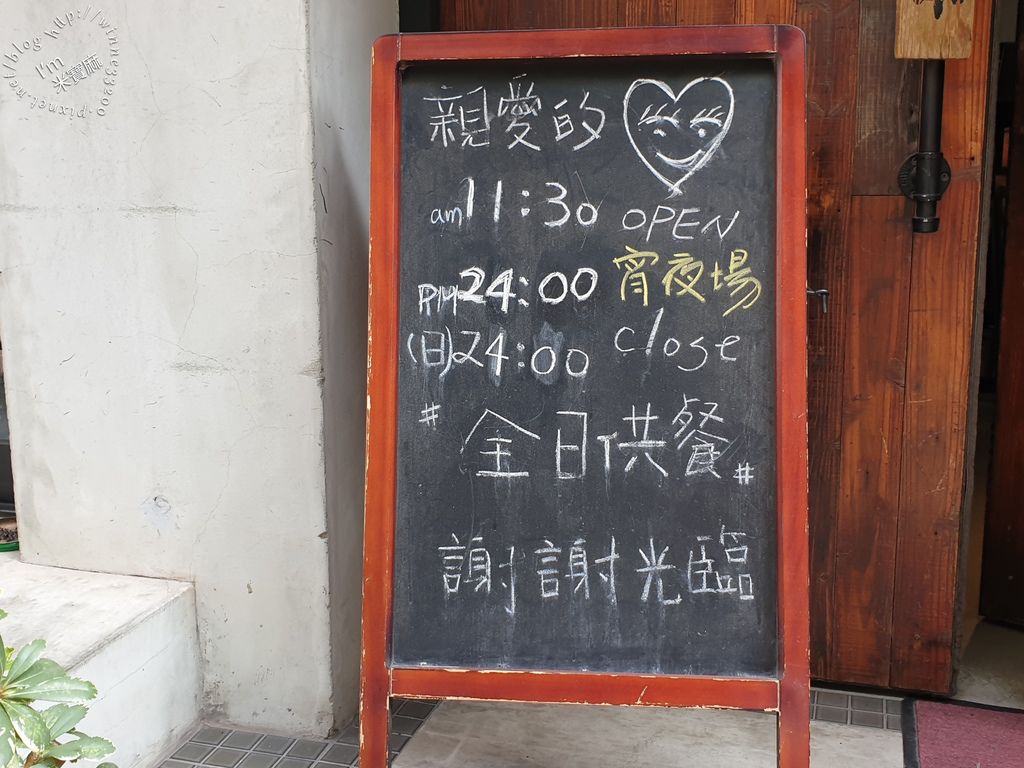 親愛的
am 11:30 OPEN
PM 24:00 宵夜場
(日) 24:00 close
# 全日供餐 #
謝謝光臨
I'm 米寶麻
pixnet.net/blog http://winne33200.